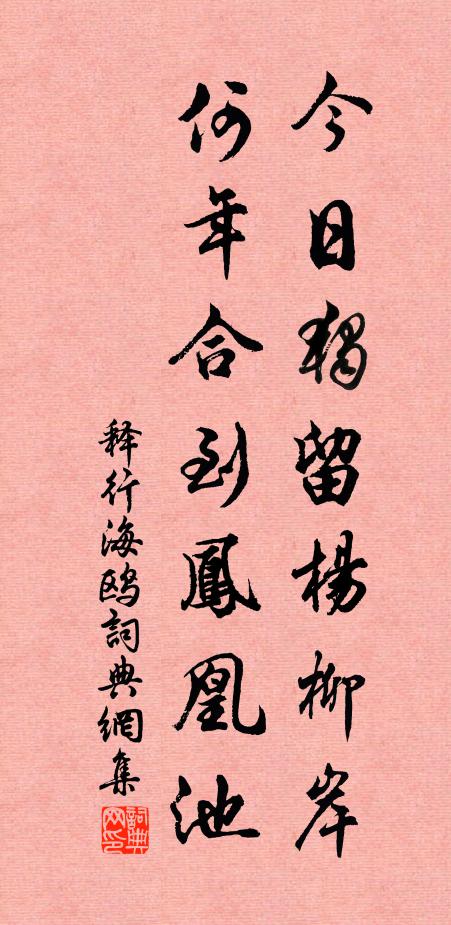 今日獨留楊柳岸
何年合到鳳凰池
释行海鸥詞典網集
詞典网印